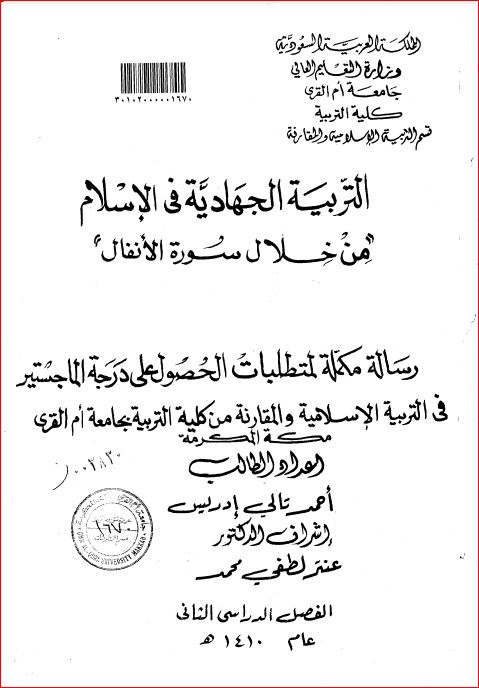 المملكة العربية السعودية
وزارة التعليم العالي
جامعة أم القرى
كلية التربية
قسم التربية الإسلامية والمقارنة
٣٠١٠٢٠٠٠٠٠١٦٧٠
التربية الجهادية في الإسلام
"من خلال سورة الأنفال"
رسالة مكملة لمتطلبات الحصول على درجة الماجستير
في التربية الإسلامية والمقارنة من كلية التربية بجامعة أم القرى
مكة المكرمة
إعداد الطالب
أحمد تالي إدريس
إشراف الدكتور
عنتر لطفي محمد
الفصل الدراسى الثانى
عام ١٤١٠ هـ
٠٠٣٨٣٠
١٦٧٠
UMM AL-QURA UNIVERSITY MAKKAH